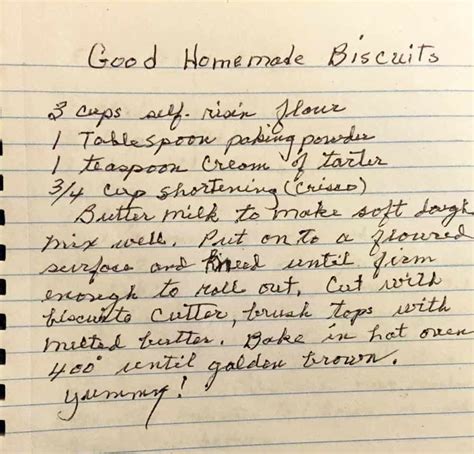 Good Homemade Biscuits
3 cups self-risin flour
1 Tablespoon paking powder
1 teaspoon Cream of tarter
3/4 cup shortening (Crisco)
Butter milk to make soft dough
mix well. Put on to a floured
surface and kneed until firm
enough to roll out. Cut with
biscuits cutter, brush tops with
melted butter. Bake in hot oven
400° until golden brown.
yummy!